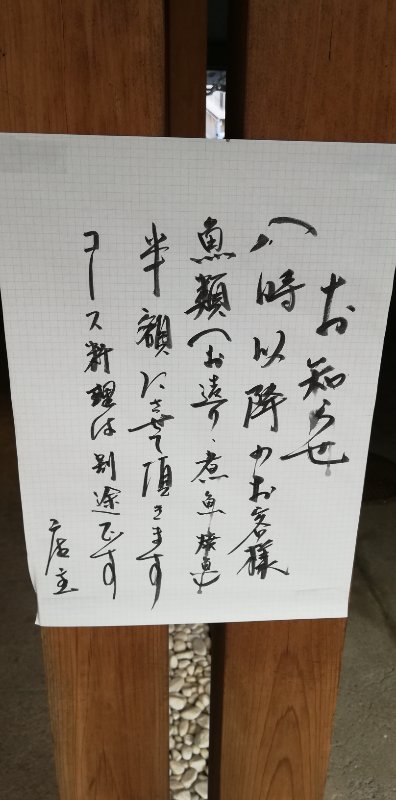 お知らせ
八時以降のお客様
魚類(お造り、煮魚、焼魚)
半額にさせて頂きます
コース料理は別途です
店主